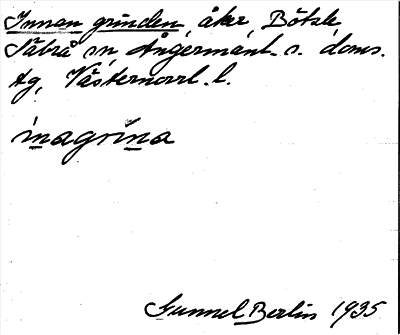 Innan grinden, åker, Bölsle,
Säbrå sn, Ångermanl. s. doms.
tg, Västernorrl. l.
inagrina
Gunnel Berlin 1935